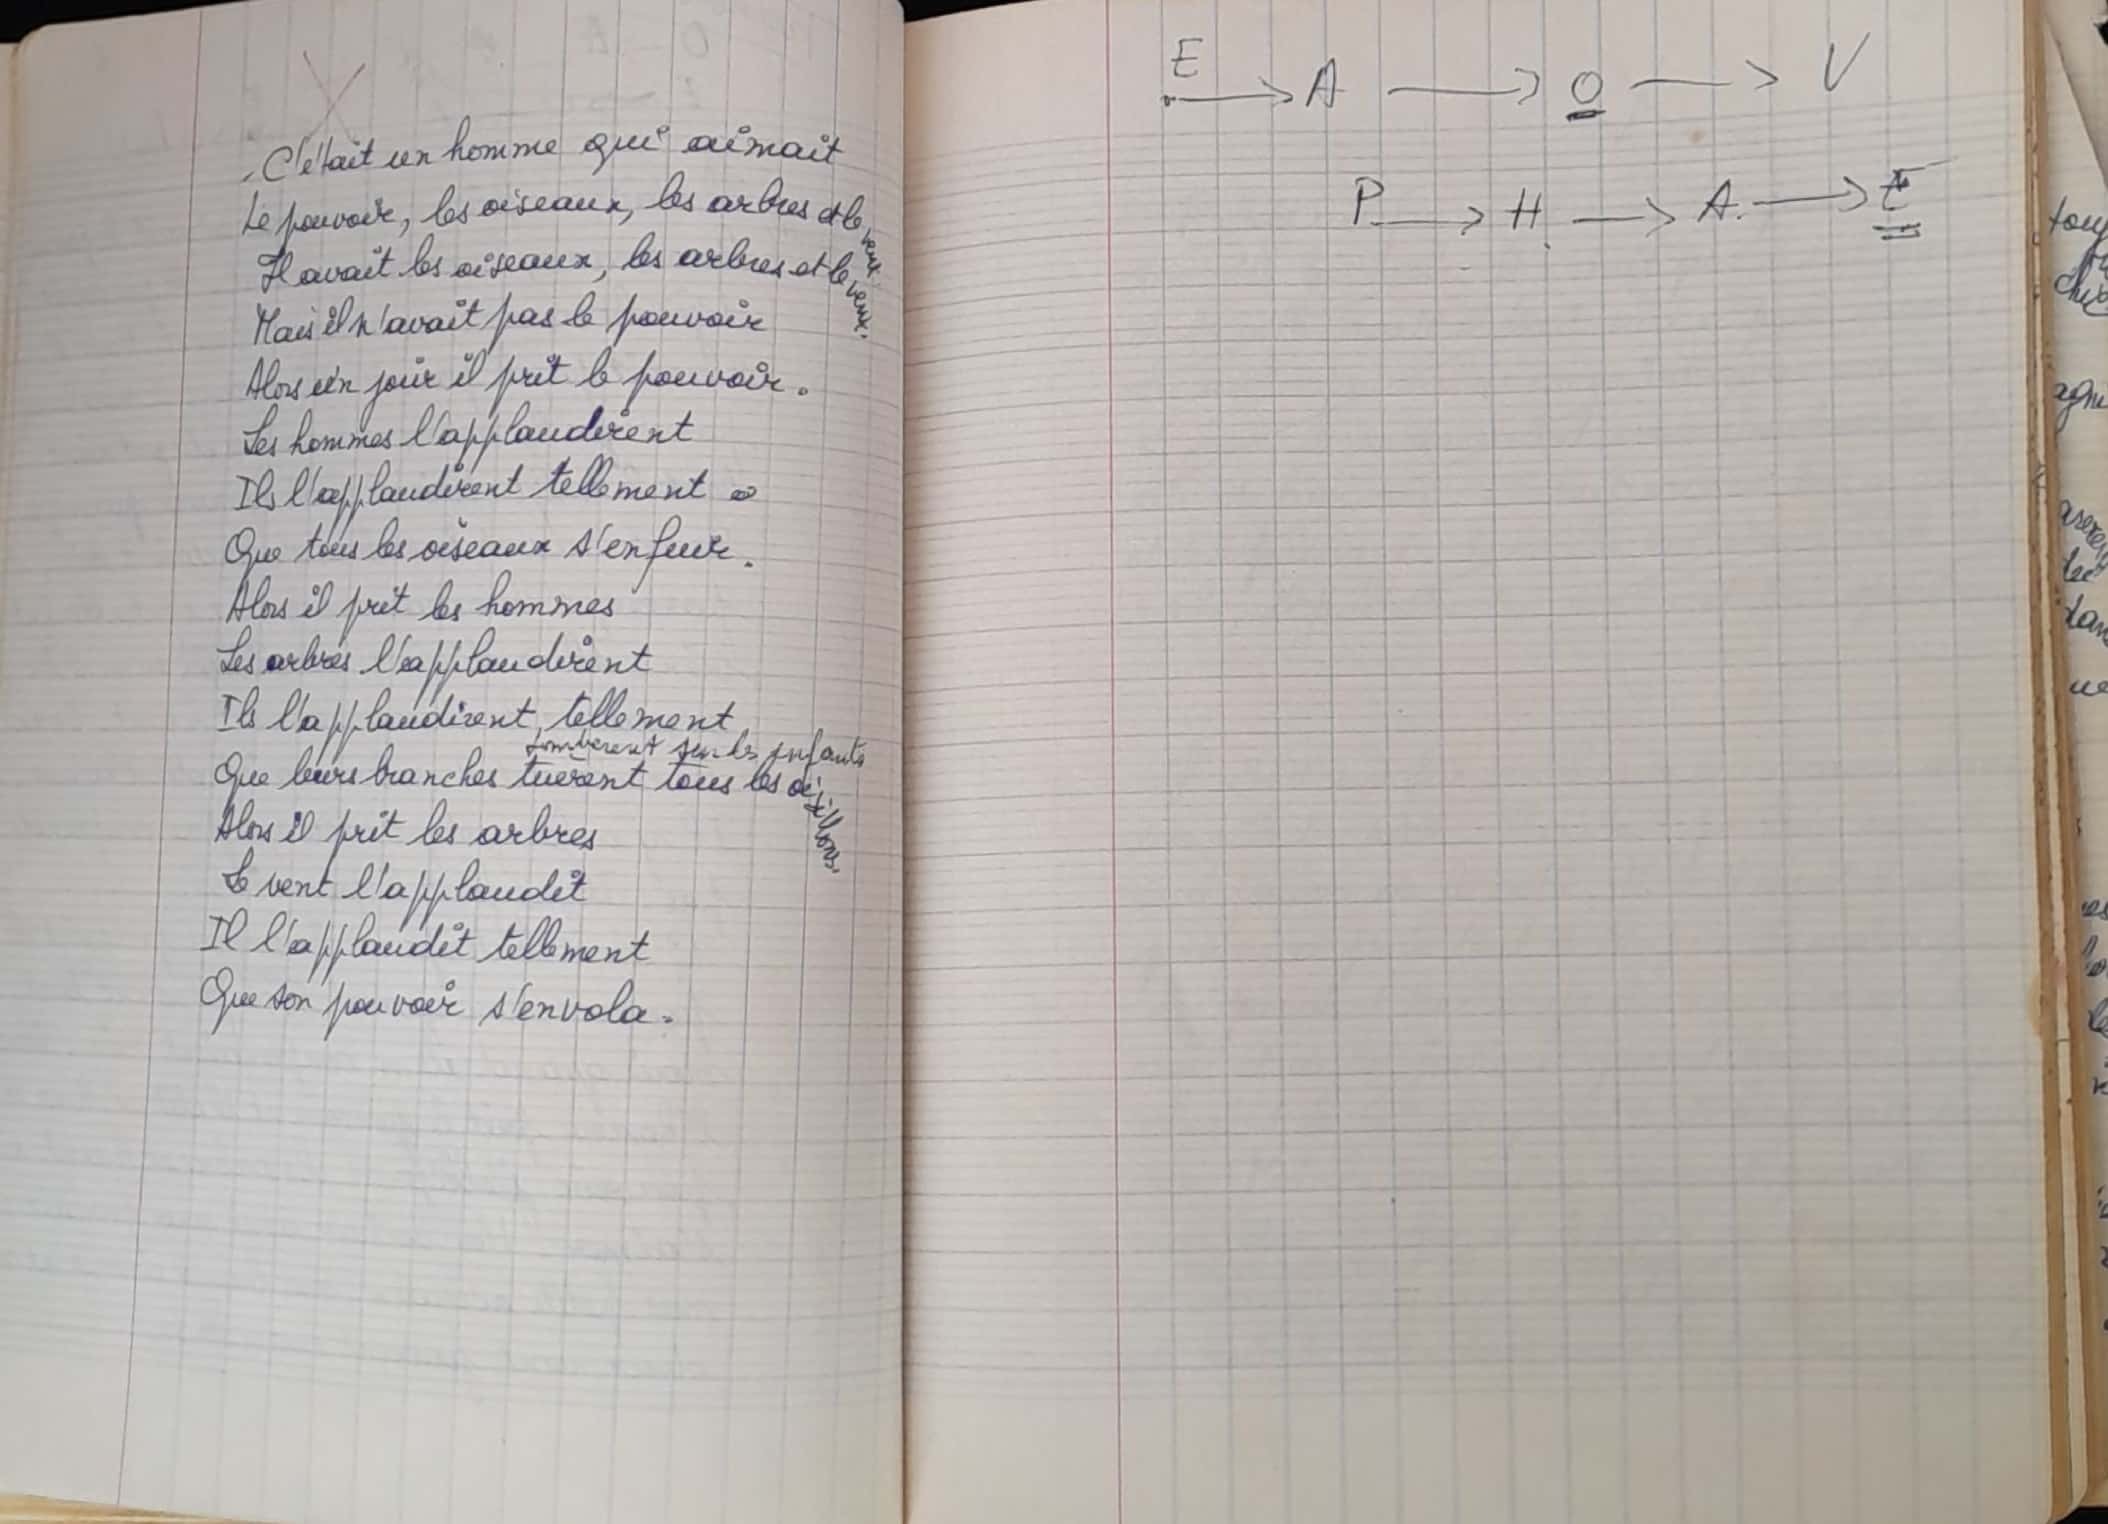 C'était un homme qui aimait
Le pouvoir, les oiseaux, les arbres et le vent.
Il avait les oiseaux, les arbres et le vent.
Mais il n'avait pas le pouvoir
Alors un jour il prit le pouvoir.
Les hommes l'applaudirent
Ils l'applaudirent tellement
Que tous les oiseaux s'enfuir.
Alors il prit les hommes
Les arbres l'applaudirent
Ils l'applaudirent tellement
tombèrent sur les enfants
Que leurs branches tuèrent tous les oisillons.
Alors il prit les arbres
Le vent l'applaudit
Il l'applaudit tellement
Que son pouvoir s'envola.
E → A → O → V
P → H → A. → E
agni